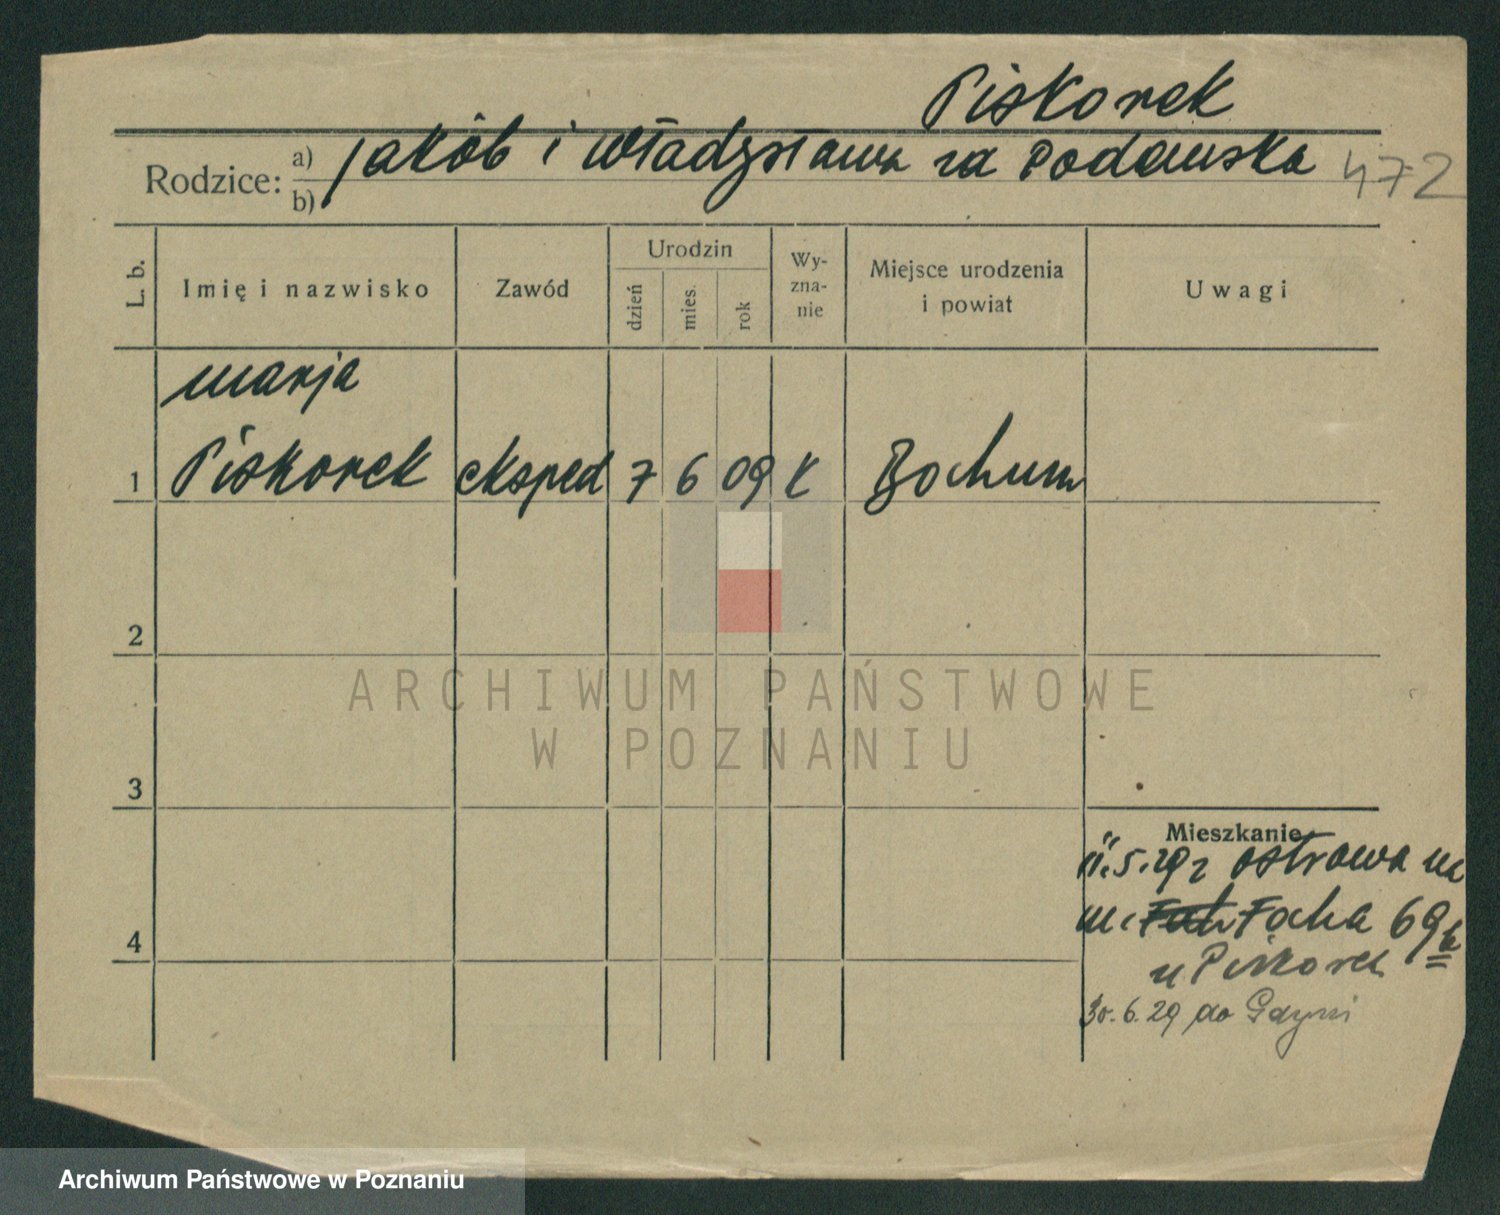 Piskorek
Rodzice: a) Jakób i Władysława za Podawska 472
b)
L. b.
Imię i nazwisko
Zawód
Urodzin
dzień
mies.
rok
Wy-
zna-
nie
Miejsce urodzenia
i powiat
Uwagi
Marja
1 Piskorek eksped 7 6 09 K Bochum
2
ARCHIWUM PAŃSTWOWE
W POZNANIU
3
Mieszkanie
11.5.29 z Ostrowa na
m. Focha 69
u Piskorek
4
30.6.29 do Gdyni
Archiwum Państwowe w Poznaniu